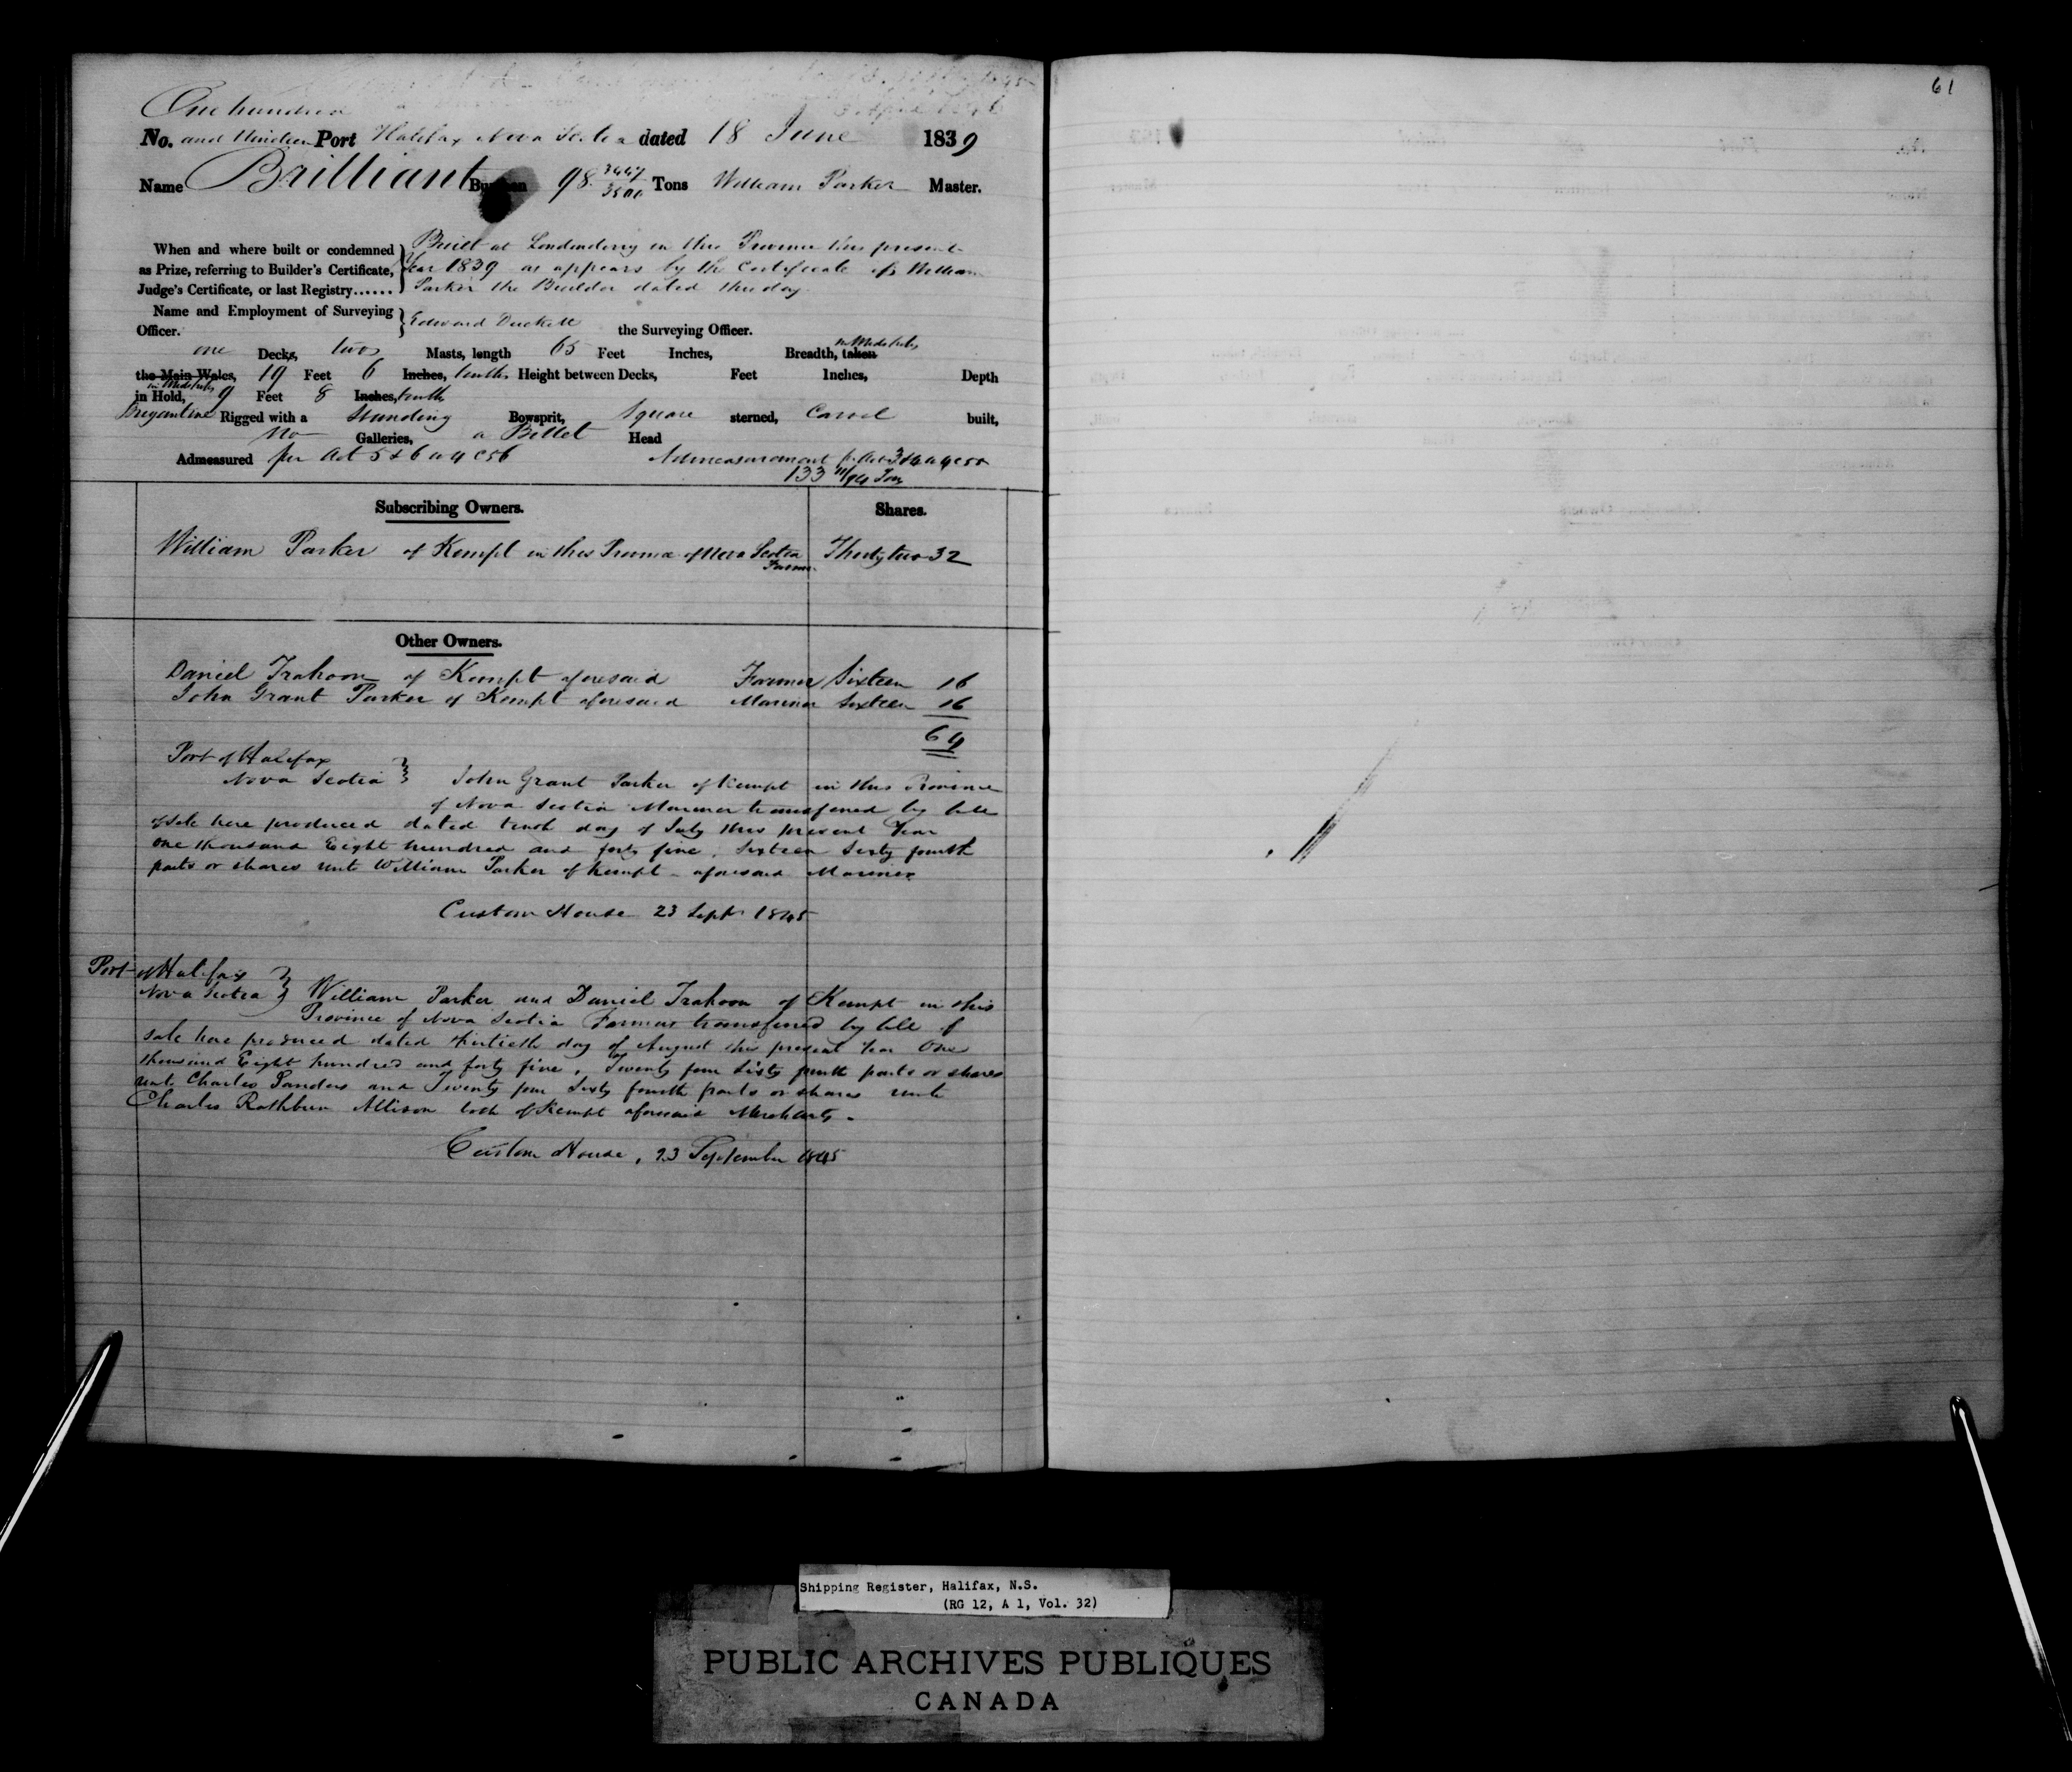 61
One hundred
No. and Nineteen Port Halifax Nova Scotia dated 18 June 1839
Name Brilliant Burthen 98 3447/3500 Tons William Parker Master.
When and where built or condemned as Prize, referring to Builder's Certificate, Judge's Certificate, or last Registry......
Built at Londonderry in this Province this present
Year 1839 as appears by the Certificate of William
Parker the Builder dated this day
Name and Employment of Surveying Officer. Edward Duckett the Surveying Officer.
one Decks, two Masts, length 65 Feet Inches, Breadth, taken in Midships
the Main Wales, 19 Feet 6 Inches, tenths Height between Decks, Feet Inches, Depth
in Midships
in Hold, 9 Feet 8 Inches, tenths
Brigantine Rigged with a Standing Bowsprit, Square sterned, Carvel built,
No Galleries, a Billet Head
Admeasured per Act 5 & 6 W 4 C 56 Admeasurement pr Act 3 & 4 W 4 C 55
133 11/94 Tons
Subscribing Owners. Shares.
William Parker of Kempt in this Province of Nova Scotia Thirty two 32
Farmer
Other Owners.
Daniel Trahoon of Kempt aforesaid Farmer Sixteen 16
John Grant Parker of Kempt aforesaid Mariner Sixteen 16
64
Port of Halifax
Nova Scotia } John Grant Parker of Kempt in this Province
of Nova Scotia Mariner transferred by bill
of Sale here produced dated tenth day of July this present Year
One thousand Eight hundred and forty five, Sixteen Sixty fourth
parts or shares unto William Parker of Kempt aforesaid Mariner
Custom House 23 Septr 1845
Port of Halifax
Nova Scotia } William Parker and Daniel Trahoon of Kempt in this
Province of Nova Scotia Farmers transferred by bill of
Sale here produced dated thirtieth day of August this present Year One
thousand Eight hundred and forty five, Twenty four Sixty fourth parts or shares
unto Charles Sanders and Twenty four Sixty fourth parts or shares unto
Charles Rathburn Allison both of Kempt aforesaid Merchants.
Custom House, 23 September 1845
Shipping Register, Halifax, N.S.
(RG 12, A 1, Vol. 32)
PUBLIC ARCHIVES PUBLIQUES
CANADA